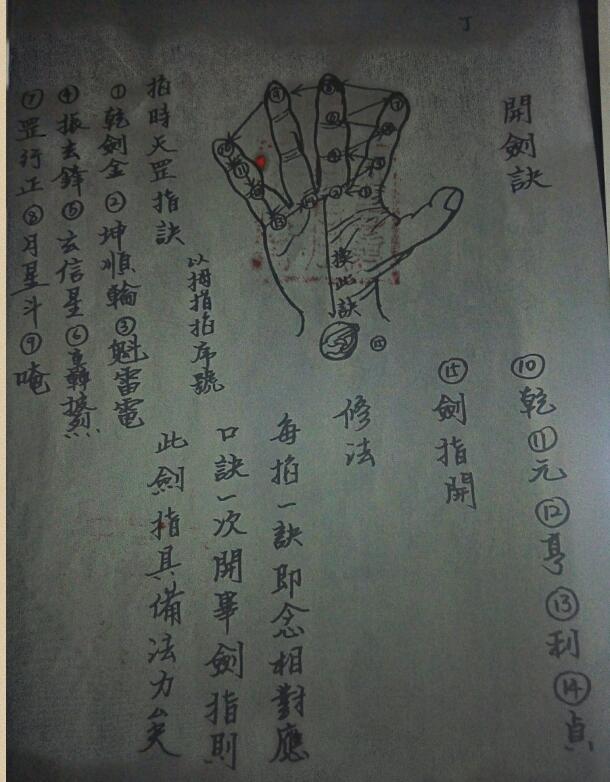 丁
開劍訣
掐時天罡指訣
以拇指掐序號
①乾劍金②坤順輪③魁雷電
④振玄鋒⑤玄信星⑥轟轉
⑦罡行正⑧月星斗⑨唵
⑩乾⑪元⑫亨⑬利⑭貞
⑮劍指開
挨此訣
⑮
修法
每掐一訣即念相對應
口訣一次開畢劍指則
此劍指具備法力矣